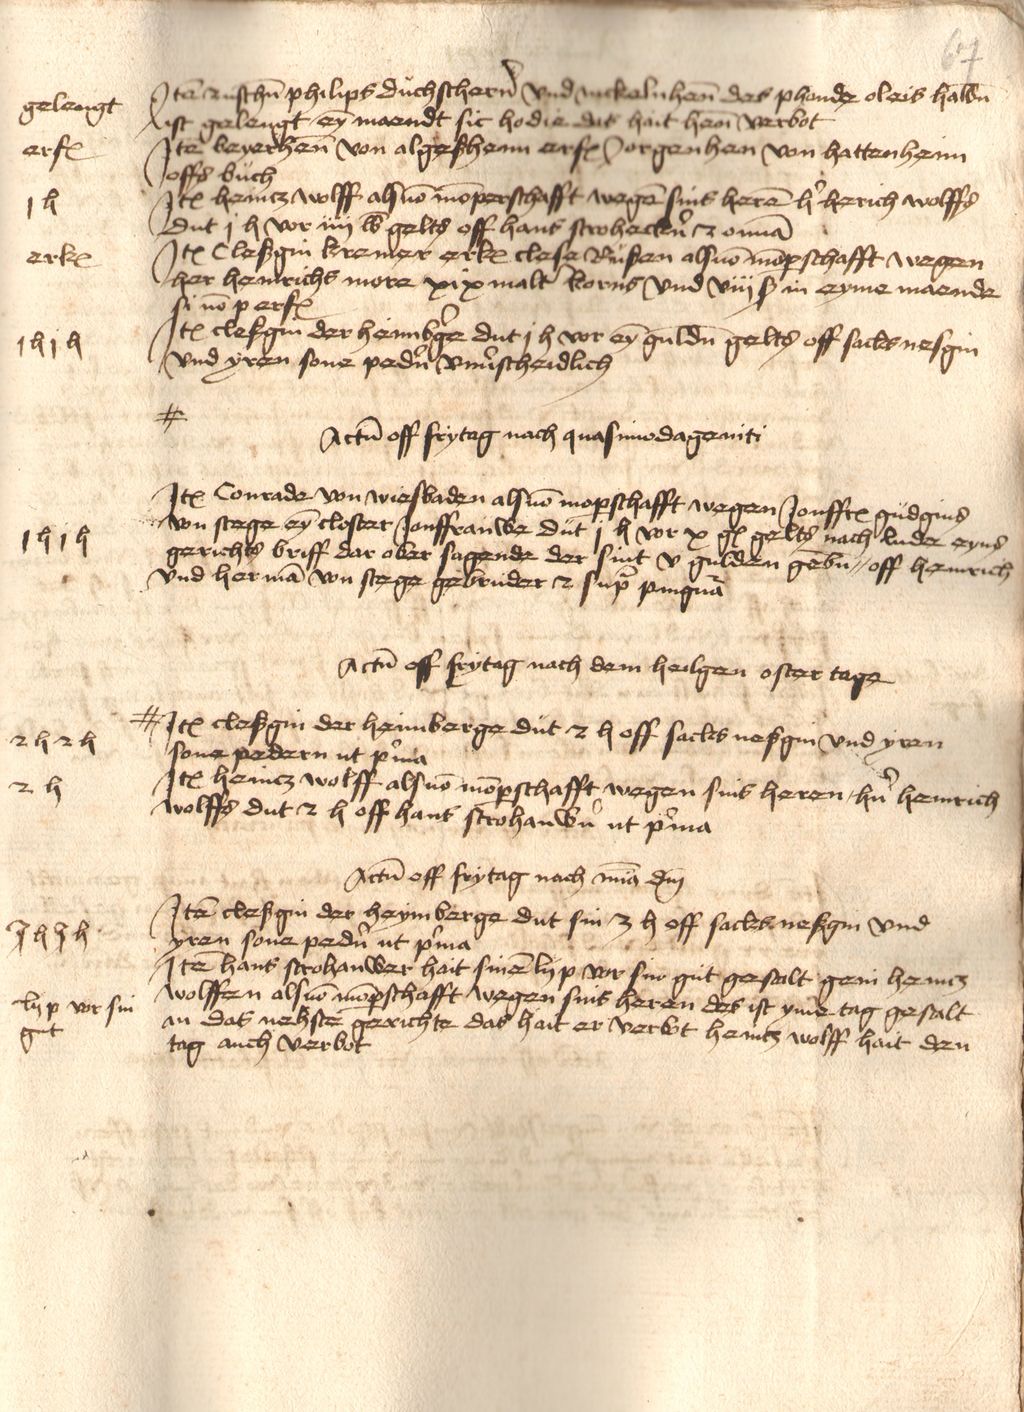 67
gelengt
Jtē zuschē philips duchscherer vnd nickelnhen des phande oleis halbū
ist gelengt ey maendt sic hodie dat hait hen verbot
erk
Jtē beyerhen von algeßheim erk Jorgenhen von hattenheim
offs buch
1 h
Jtē heincz wolff als vō mōperschafft wegē sins herē h' herich wolffs
dut j h vor iiij lb gelts off hans strohecker z omīa
erk
Jtē Cleßgin kremer erk clese Rußen als vō mōperschafft wegen
her heinrichs more xix malt korns vnd viij ß in eyme maende
si nō p erk
1 h 1 h
Jtē cleßgin der heimb'ge dut j h vor ey guldū gelts off sacks neßgin
vnd yren sone ped'n vnu'scheidlich
Actū off frytag nach quasimodageniti
1 h 1 h
Jtē Conrade von wiesbaden als vō mōperschafft wegen Jonffr gudgins
von stege ey closter Jonffrauwe dut j h vor x gl gelts nach lude eyns
gerichts briff dar ober sagende der sint v gulden gebū off heinrich
vnd hermā von stege gebruder z sup pingnā
Actū off frytag nach dem heilgen oster tage
2 h 2 h
Jtē cleßgin der heimberge dut 2 h off sacks neßgin vnd yren
sone pedern ut p'ma
2 h
Jtē heincz wolff als vō mōperschafft wegen sins heren h'n heinrich
wolffs dut 2 h off hans strohauw'n ut p'ma
Actū off frytag nach mīa dnj
3 h 3 h
Jtē cleßgin der heymberge dut sin 3 h off sacks neßgin vnd
yren sone ped'n ut p'ma
lyp vor sin
gut
Jtē hans strohauwer hait sinē lyp vor sin gut gestalt gein heincz
wolffen als vō mōperschafft wegen sins heren des ist yme tag gestalt
an das nehste gerichte das hait er verbot heincz wolff hait den
tag auch verbot